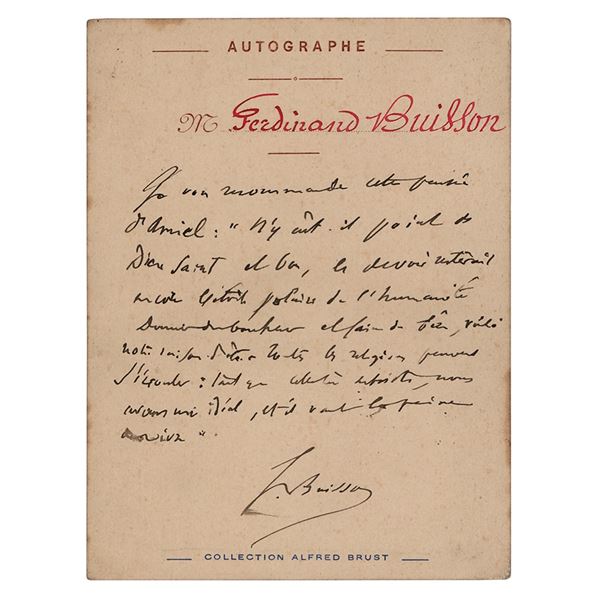 AUTOGRAPHE
M Ferdinand Buisson
Je vous recommande cette pensée
d'Amiel : " N'y eût-il point de
Dieu Saint et bon, le devoir resterait
encore l'étoile polaire de l'humanité
Donner du bonheur et faire du bien, voilà
notre raison d'être. Toutes les religions peuvent
s'écrouler : tant que celle-là subsiste, nous
avons un idéal, et il vaut la peine
de vivre ".
F. Buisson
COLLECTION ALFRED BRUST